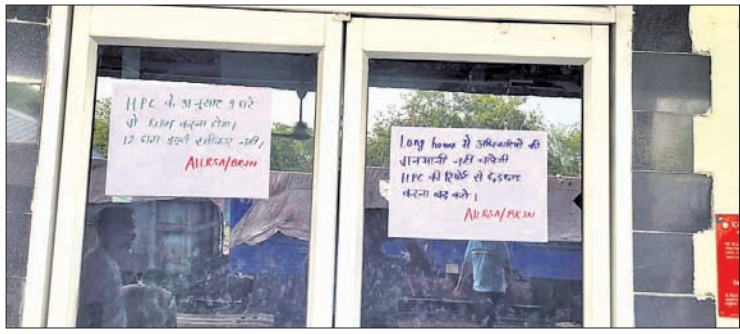 HPC के अनुसार 9 घंटे
में Relief करना होगा।
12 घंटा ड्यूटी स्वीकार नहीं।
AILRSA/BRJN
Long hours में अधिकारियों की
मनमानी नहीं चलेगी
HPC की रिपोर्ट से छेड़छाड़
करना बंद करो।
AILRSA/BRJN